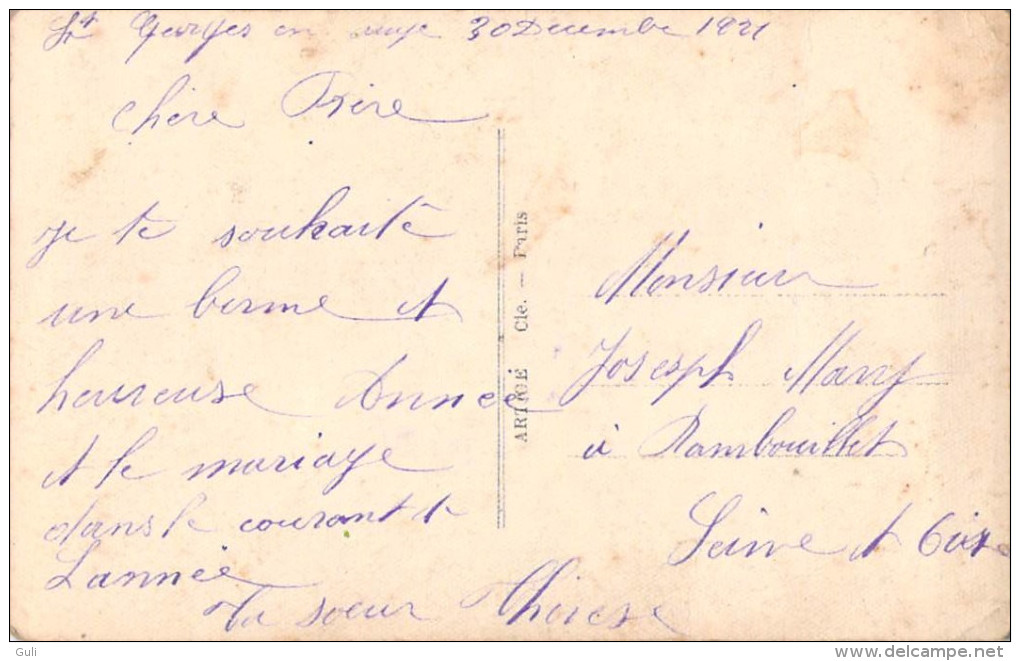 St Georges en auge 30 Decembre 1921
Chère Frère
je te souhaite
une bonne et
heureuse Année
et le mariage
dans le courant de
Lannée
Ta soeur Thérèse
ARTIGE Cie. — Paris
Monsieur
Joseph Mary
à Rambouillet
Seine et Oise
Guli
www.delcampe.net